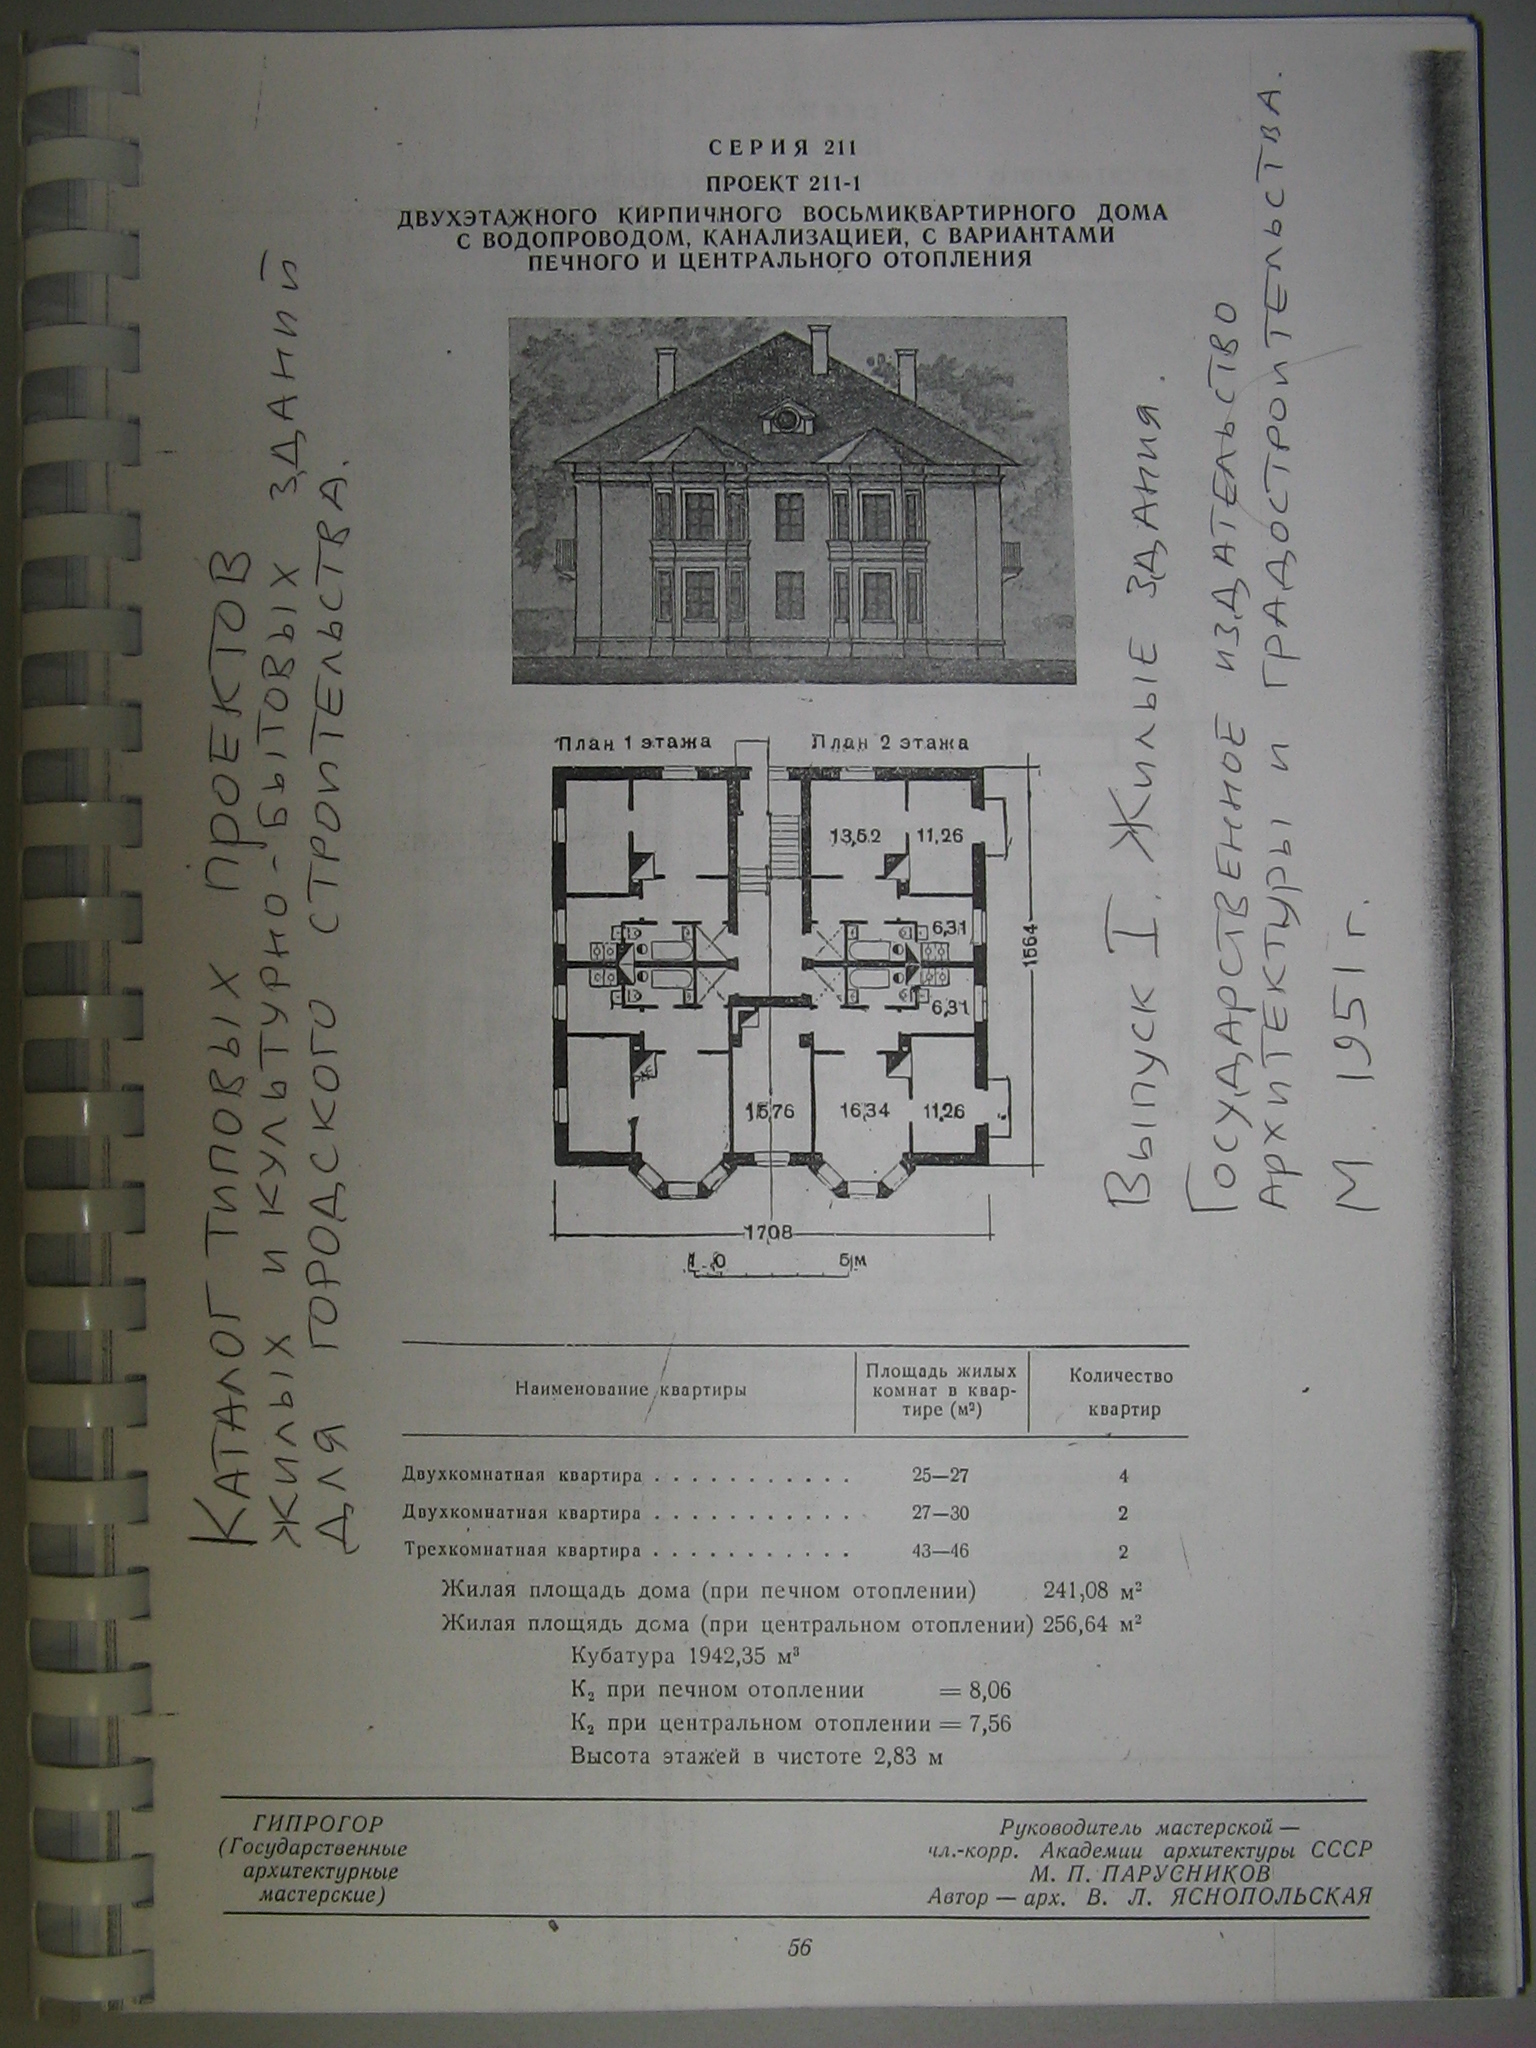 СЕРИЯ 211
ПРОЕКТ 211-1
ДВУХЭТАЖНОГО КИРПИЧНОГО ВОСЬМИКВАРТИРНОГО ДОМА
С ВОДОПРОВОДОМ, КАНАЛИЗАЦИЕЙ, С ВАРИАНТАМИ
ПЕЧНОГО И ЦЕНТРАЛЬНОГО ОТОПЛЕНИЯ
План 1 этажа План 2 этажа
13,52 11,26
6,31
1564
6,31
15,76 16,34 11,26
1708
1 0 5 м
Наименование квартиры Площадь жилых Количество
комнат в квар- квартир
тире (м²)
Двухкомнатная квартира . . . . . . . . . . . 25—27 4
Двухкомнатная квартира . . . . . . . . . . . 27—30 2
Трехкомнатная квартира . . . . . . . . . . . 43—46 2
Жилая площадь дома (при печном отоплении) 241,08 м²
Жилая площядь дома (при центральном отоплении) 256,64 м²
Кубатура 1942,35 м³
К₂ при печном отоплении = 8,06
К₂ при центральном отоплении = 7,56
Высота этажей в чистоте 2,83 м
ГИПРОГОР
(Государственные
архитектурные
мастерские)
Руководитель мастерской —
чл.-корр. Академии архитектуры СССР
М. П. ПАРУСНИКОВ
Автор — арх. В. Л. ЯСНОПОЛЬСКАЯ
56
Каталог типовых проектов
жилых и культурно-бытовых зданий
для городского строительства.
Выпуск I. Жилые здания.
Государственное издательство
архитектуры и градостроительства.
М. 1951 г.